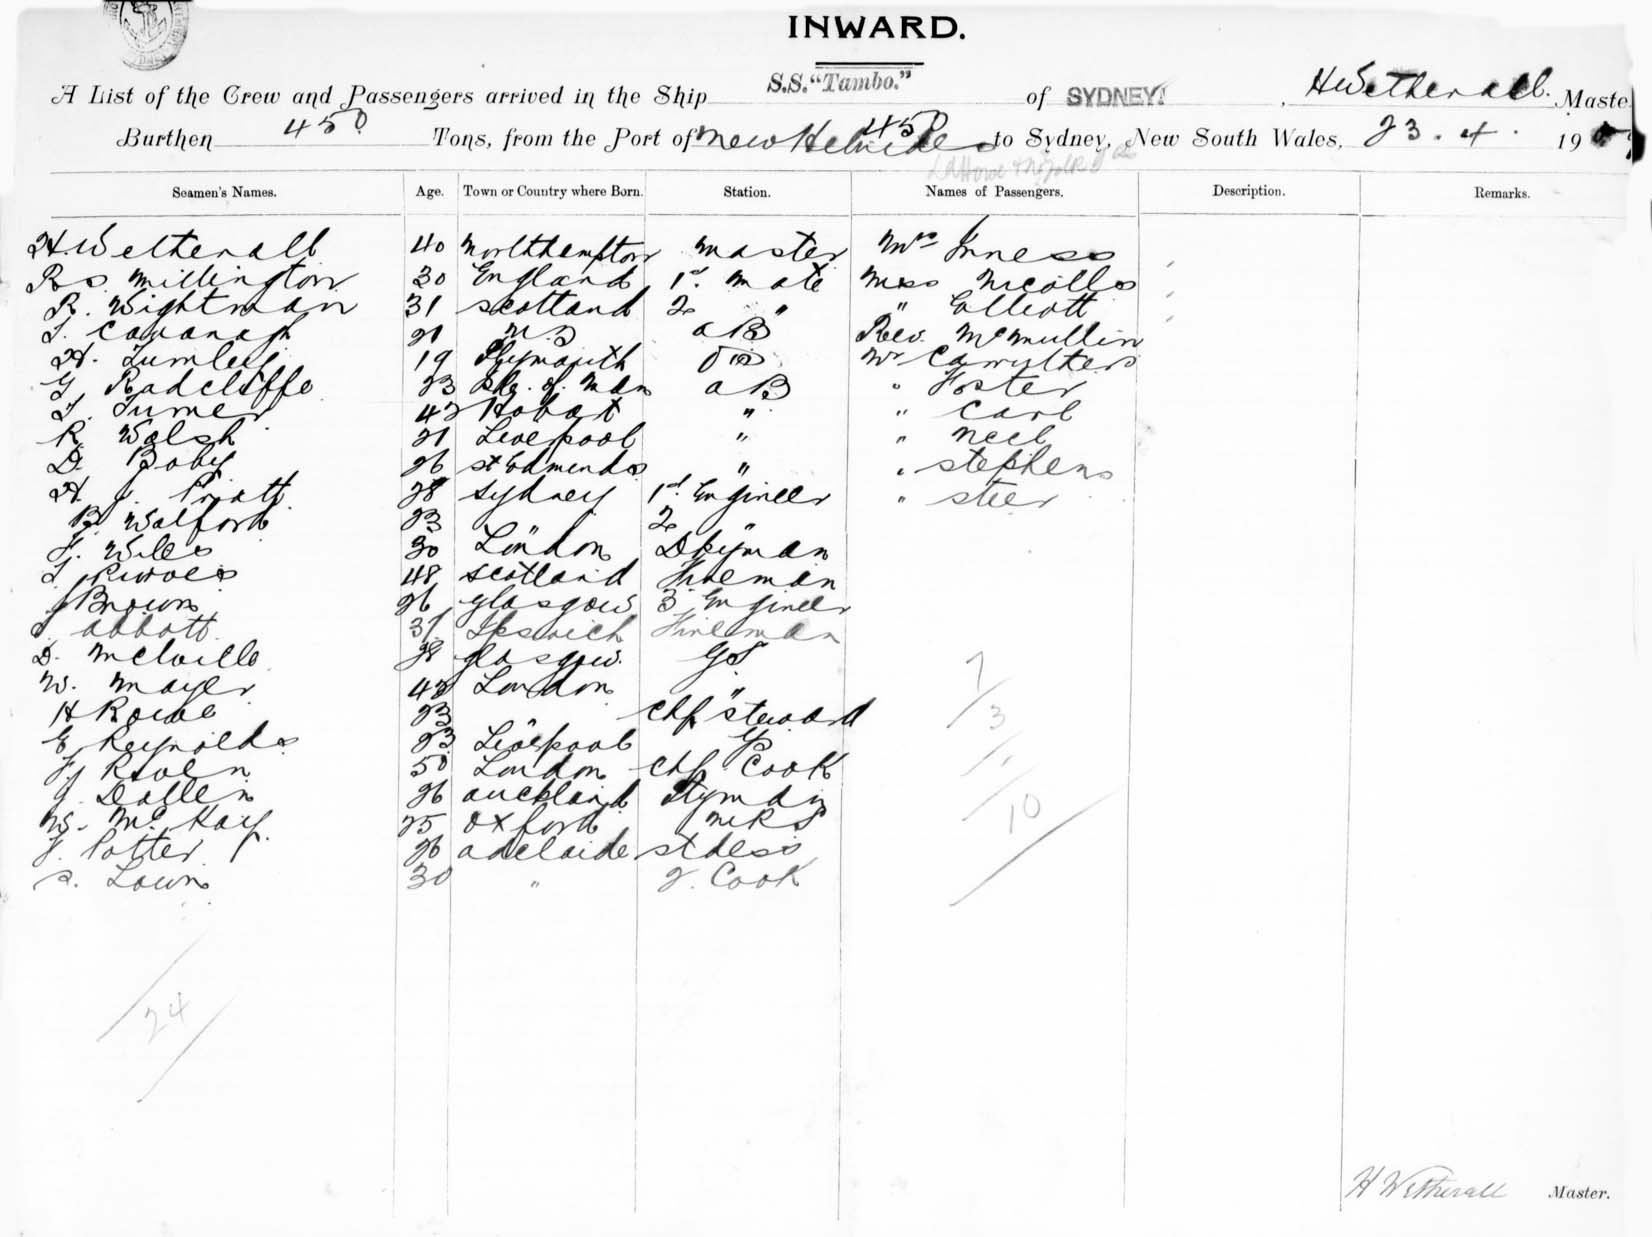 INWARD.
A List of the Crew and Passengers arrived in the Ship S.S. "Tambo." of SYDNEY, H Wetherall. Maste
Burthen 450 Tons, from the Port of New Hebrides 450 to Sydney, New South Wales, 23. 4. 190
Ld Howe & Norfolk Is
Seamen's Names. Age. Town or Country where Born. Station. Names of Passengers. Description. Remarks.
H. Wetherall 40 Northhampton Master Mrs Inness
R S. Millington 30 England 1st. Mate Miss Nicolls
R. Wightman 31 Scotland 2 " " Elliott
T. Cavanagh 21 AB Rev. McMullin
H. Tumley 19 Plymouth OS Mr Carruthers
G Radcliffe 23 Isle. of. Man AB " Foster
T. Turner 42 Hobat " " Carl
R Walsh 21 Liverpool " " Neil
D Boby 26 St Edmunds " " Stephens
H. J. Pratt 28 Sydney 1st Engineer " Steer
B Walford 23 " 2 "
F. Wiles 30 London Dkyman
T 48 Scotland Fireman
J Brown 26 Glasgow 3 Engineer
J Abbott 37 Ipswich Fireman
D. Melville 28 Glasgow. GS
W. Mayer 42 London "
H Rowe 23 " Chf Steward
E Reynolds 23 Liverpool GS
F. 50 London Chf Cook
J. Dallen 26 Auckland
W. McKay 25 Oxford
F. Potter 26 Adelaide Stdess
S. Lown 30 " 2. Cook
7
3
10
24
H Wetherall Master.